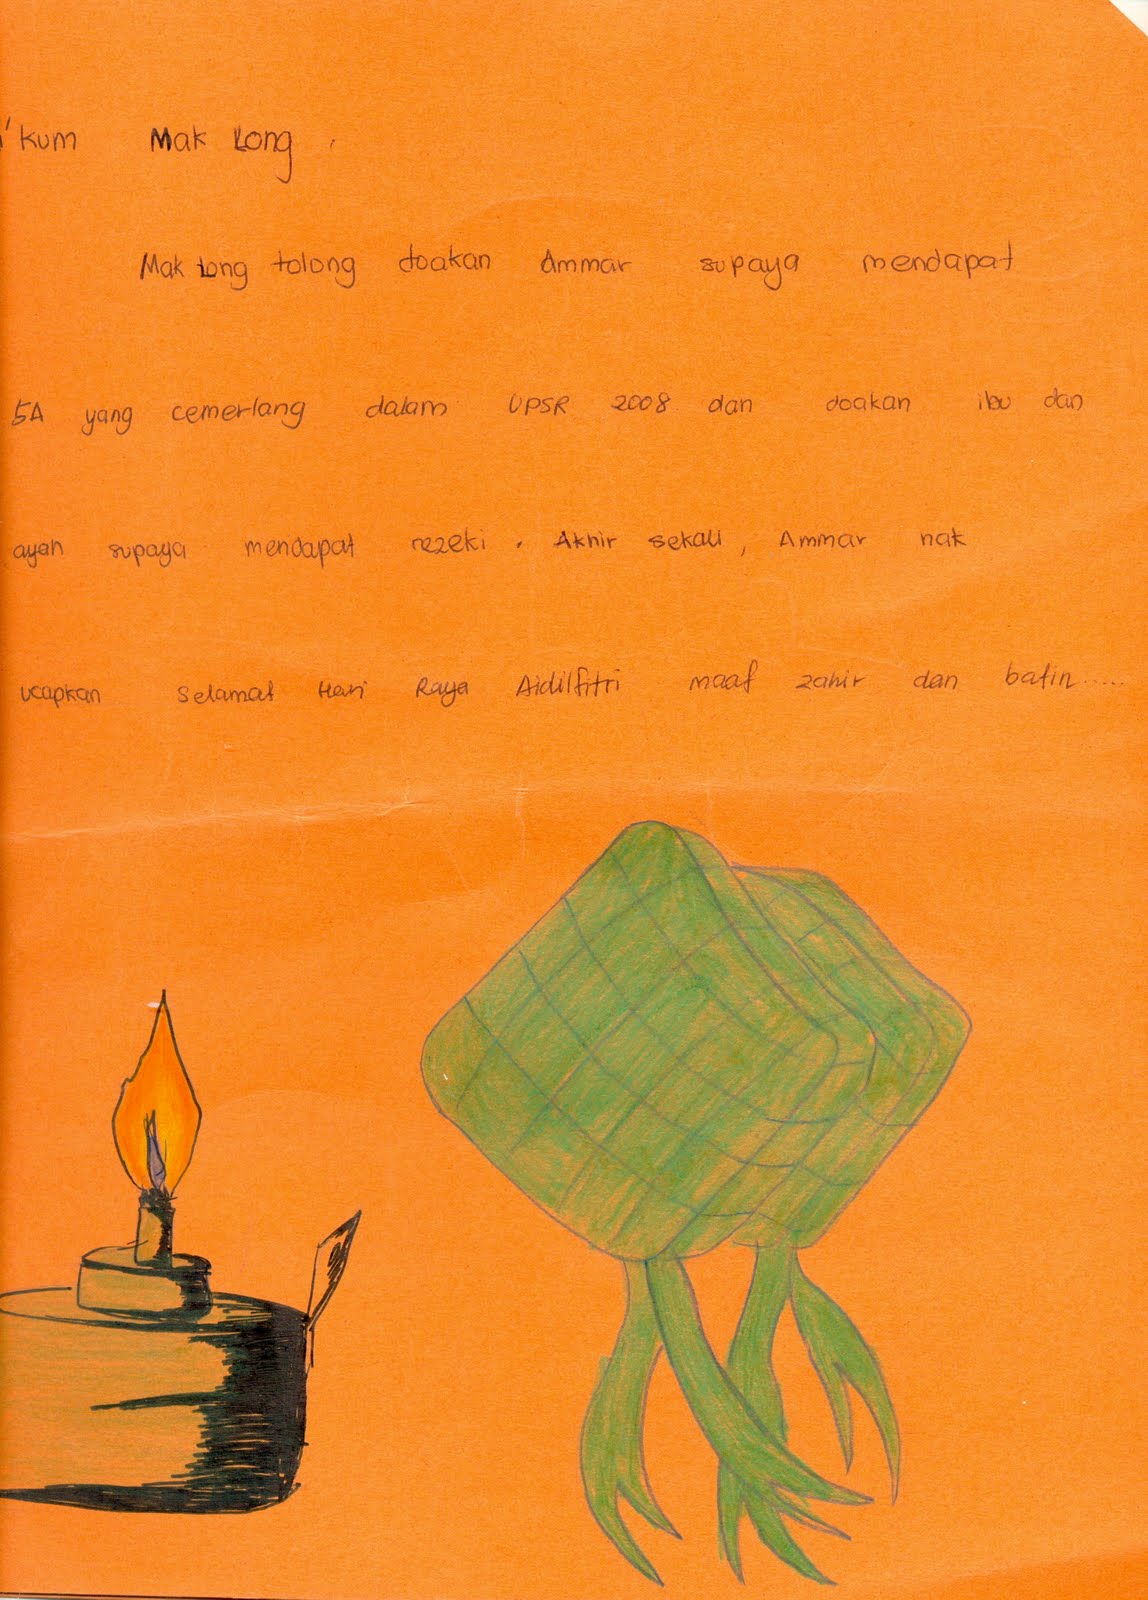 'kum Mak Long.
Mak Long tolong doakan Ammar supaya mendapat
5A yang cemerlang dalam UPSR 2008 dan doakan ibu dan
ayah supaya mendapat rezeki. Akhir sekali, Ammar nak
ucapkan Selamat Hari Raya Aidilfitri maaf zahir dan batin.....